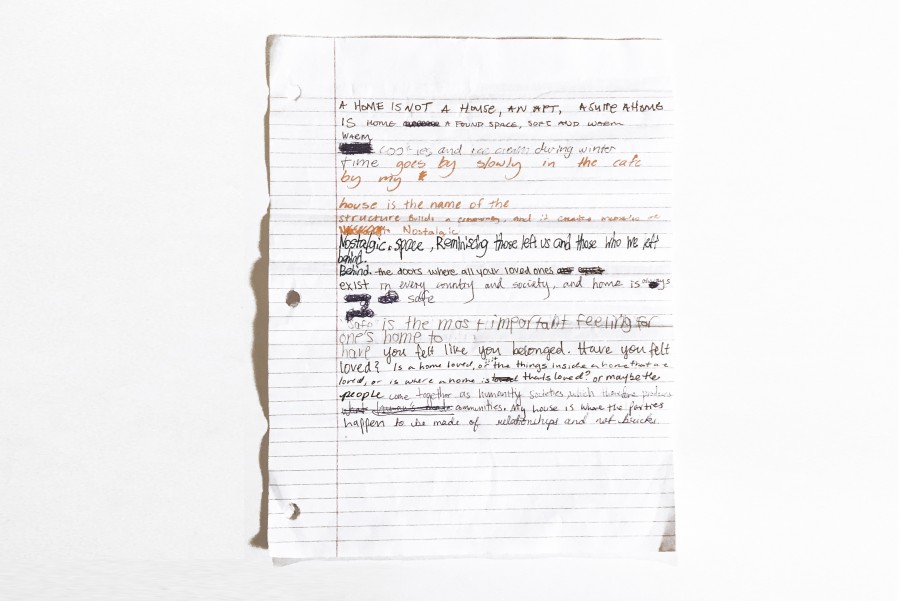 A HOME IS NOT A HOUSE, AN APT, A SUITE A HOME
IS HOME A FOUND SPACE, SOFT AND WARM
WARM
cookies and ice cream during winter
time goes by slowly in the cafe
by my
house is the name of the
structure Builds a community, and it creates memories
Nostalgic
Nostalgic space, Reminiscing those left us and those who we left
behind.
Behind the doors where all your loved ones
exist in every country and society, and home is always
safe
Safe is the most important feeling for
one's home to
have you felt like you belonged. Have you felt
loved? Is a home loved, or the things inside a home that are
loved, or is where a home is that is loved? or maybe the
people come together as humanity societies, which therefore
communities. My house is where the parties
happen to be made of relationships and not bricks.